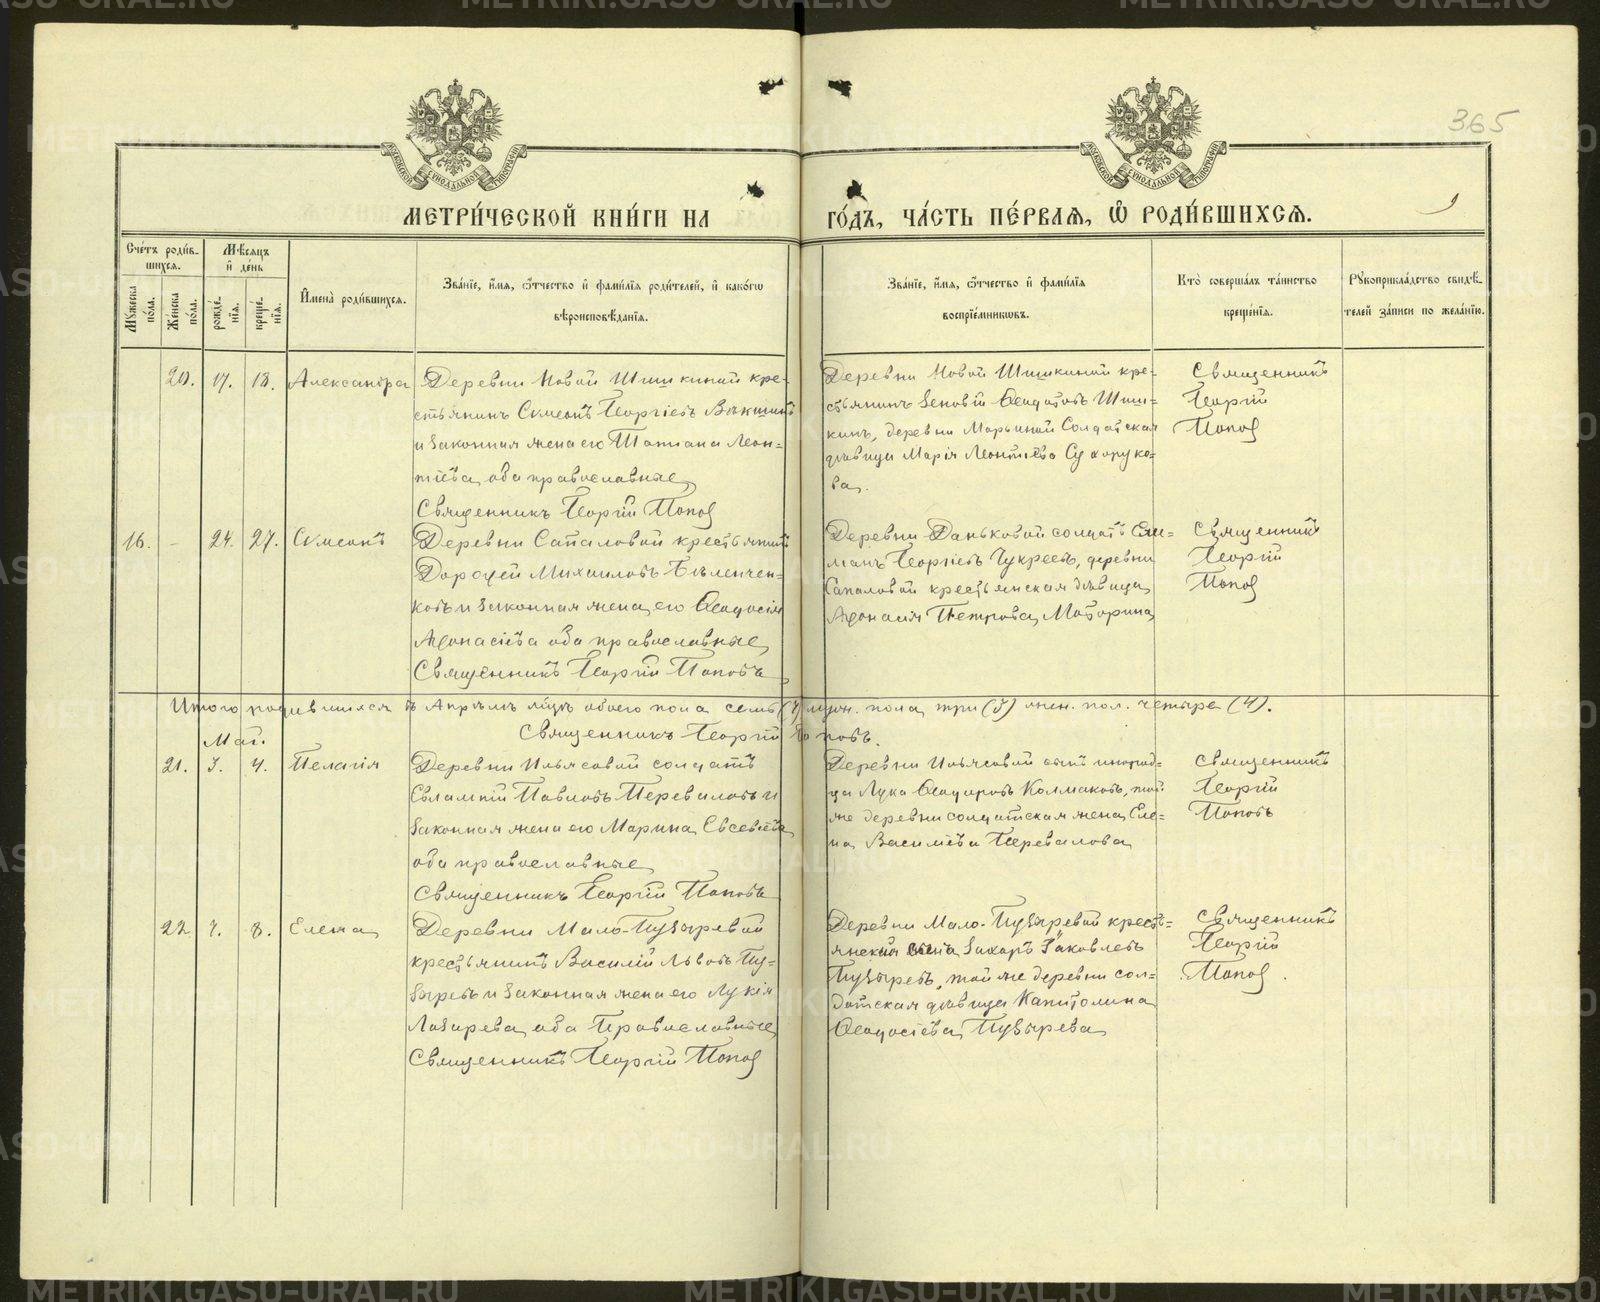 365
9
МОСКОВСКОЙ СѴНОДАЛЬНОЙ ТИПОГРАФІИ
МОСКОВСКОЙ СѴНОДАЛЬНОЙ ТИПОГРАФІИ
МЕТРИ́ЧЕСКОЙ КНИ́ГИ НА ГО́ДЪ, ЧА́СТЬ ПЕ́РВАѦ, Ѡ҆ РОДИ́ВШИХСѦ.
Сче́тъ роди́в-
шихсѧ.
Мꙋжеска по́ла.
Же́нска по́ла.
Мѣсѧцъ
и҆ де́нь
рожде́-
нїѧ.
креще́-
нїѧ.
И҆мена̀ роди́вшихсѧ.
Зва́нїе, и҆́мѧ, ѻ҆́тчество и҆ фамѝлїѧ роди́телей, и҆ како́гѡ
вѣроисповѣ́данїѧ.
Зва́нїе, и҆́мѧ, ѻ҆́тчество и҆ фамѝлїѧ
воспрїе́мникѡвъ.
Кто̀ соверша́лъ та́инство
креще́нїѧ.
Рꙋкоприкла́дство свидѣ́-
телей за́писи по жела́нїю.
20. 17. 18. Александра
Деревни Новой Шишкиной кре-
стьянинъ Сѵмеонъ Георгіевъ
и законная жена его Татіана Леон-
тіева, оба православные
Священникъ Георгій Попов
Деревни Новой Шишкиной кре-
стьянинъ Зеновій Ѳеодотовъ Шиш-
кинъ, деревни Марьиной Солдатская
дѣвица Марія Леонтіева Сухоруко-
ва.
Священникъ
Георгій
Попов
16. - 24. 27. Сѵмеонъ
Деревни Сапаловой крестьянинъ
Дорофей Михаиловъ
и законная жена его Ѳеодосія
Аѳонасіева оба православные
Священникъ Георгій Поповъ
Деревни Даньковой солдатъ
Георгіевъ Чукреевъ, деревни
Сапаловой крестьянская дѣвица
Петрова Моторина
Священникъ
Георгій
Попов
Итого родившихся въ Апрѣлѣ мѣсяцѣ обоего пола семь (7) муж. пола три (3) жен. пол. четыре (4).
Священникъ Георгій Поповъ.
Май.
21. 3. 4. Пелагія
Деревни Ильясовой солдатъ
Евлампій Павловъ Переваловъ и
законная жена его Марина Евсевіева
оба православные
Священникъ Георгій Поповъ
Деревни Ильясовой сынъ инород-
ца Лука Ѳеодоровъ Колмаковъ, той
же деревни солдатская жена Еле-
на Василіева Перевалова
Священникъ
Георгій
Поповъ
22 7. 8. Елена
Деревни Мало-Пузыревой
крестьянинъ Василій Львовъ Пу-
зыревъ и законная жена его Лукія
Лазарева, оба Православные
Священникъ Георгій Попов
Деревни Мало-Пузыревой кресть-
янскій сынъ Захаръ Іаковлевъ
Пузыревъ, той же деревни сол-
датская дѣвица Капитолина
Ѳеодосіева Пузырева
Священникъ
Георгій
Попов.
METRIKI.GASO-URAL.RU